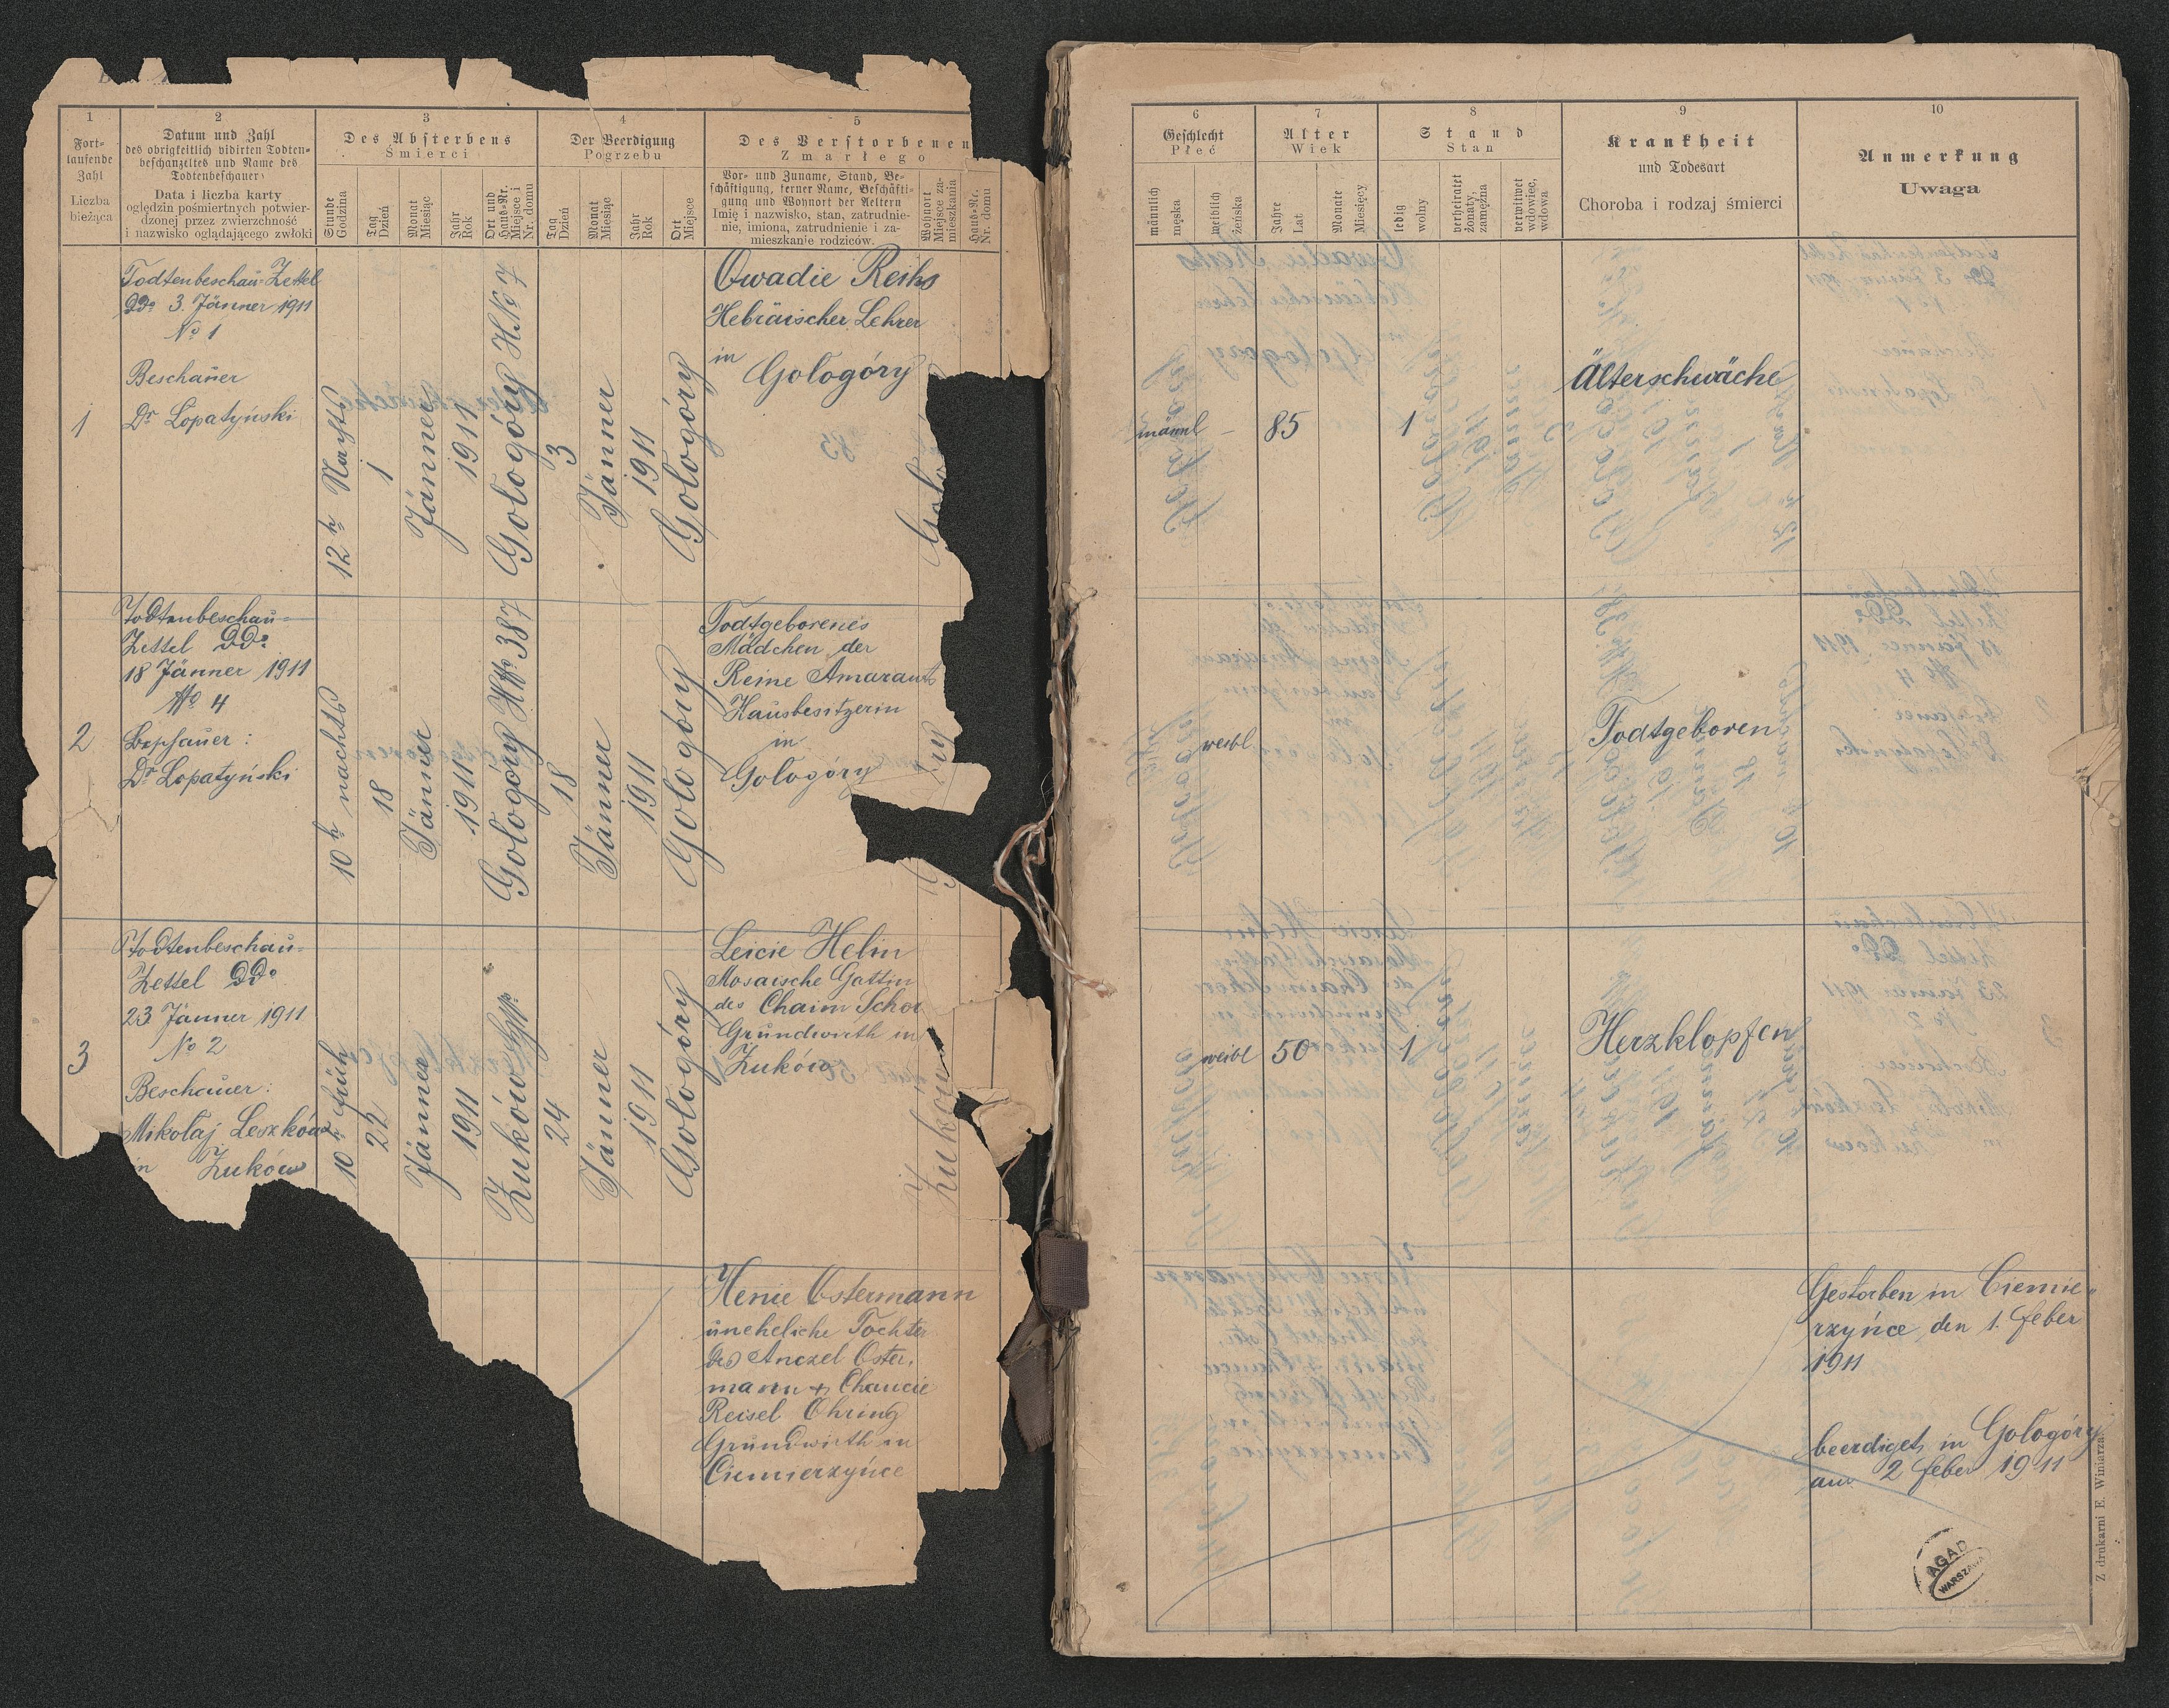 1
2
3
4
5
Fort-
laufende
Zahl
Liczba
bieżąca
Datum und Zahl
des obrigkeitlich vidirten Todten-
beschauzettels und Name des
Todtenbeschauer
Data i liczba karty
oględzin pośmiertnych potwier-
dzonej przez zwierzchność
i nazwisko oglądającego zwłoki
Des Absterbens
Śmierci
Stunde
Godzina
Tag
Dzień
Monat
Miesiąc
Jahr
Rok
Ort und
Haus-Nr.
Miejsce i
Nr. domu
Der Beerdigung
Pogrzebu
Tag
Dzień
Monat
Miesiąc
Jahr
Rok
Ort
Miejsce
Des Verstorbenen
Zmarłego
Vor- und Zuname, Stand, Be-
schäftigung, ferner Name, Beschäfti-
gung und Wohnort der Aeltern
Imię i nazwisko, stan, zatrudnie-
nie, imiona, zatrudnienie i za-
mieszkanie rodziców.
Wohnort
Miejsce za-
mieszkania
Haus-Nr.
Nr. domu
1
Todtenbeschau-Zettel
DDo 3. Jänner 1911
No 1
Beschauer
Dr Łopatyński
12 h Nachts
1
Jänner
1911
Gołogóry HNo 7
3
Jänner
1911
Gołogóry
Owadie Reiks
Hebräischer Lehrer
in
Gołogóry
Goło
2
Todtenbeschau-
Zettel DDo
18 Jänner 1911
No 4
Dr Łopatyński
10 h nachts
18
Jänner
1911
Gołogóry HNo 387
18
Jänner
1911
Gołogóry
Todtgeborenes
Mädchen der
Reine Amarant
Hausbesitzerin
in
Gołogóry
ry
3
Todtenbeschau-
Zettel DDo
23 Jänner 1911
No 2
Beschauer:
Mikołaj Leszków
in Żuków
10 h früh
22
Jänner
1911
Żuków
24
Jänner
1911
Gołogóry
Leicie Helin
Mosaische Gattin
des Chaim Schor
Grundwirth in
Żuków
Żuków
Henie Ostermann
uneheliche Tochter
des Anczel Oster-
mann + Chancie
Reisel Ohring
Grundwirth in
Ciemierzyńce
6
7
8
9
10
Geschlecht
Płeć
männlich
męska
weiblich
żeńska
Alter
Wiek
Jahre
Lat
Monate
Miesięcy
Stand
Stan
ledig
wolny
verheiratet
żonaty,
zamężna
verwitwet
wdowiec,
wdowa
Krankheit
und Todesart
Choroba i rodzaj śmierci
Anmerkung
Uwaga
männl
–
85
1
Älterschwäche
weibl
Todtgeboren
weibl
50
1
Herzklopfen
Gestorben in Ciemie-
rzyńce den 1. Feber
1911
beerdiget in Gołogóry
am 2 Feber 1911
AGAD
WARSZAWA
Z drukarni E. Winiarza.